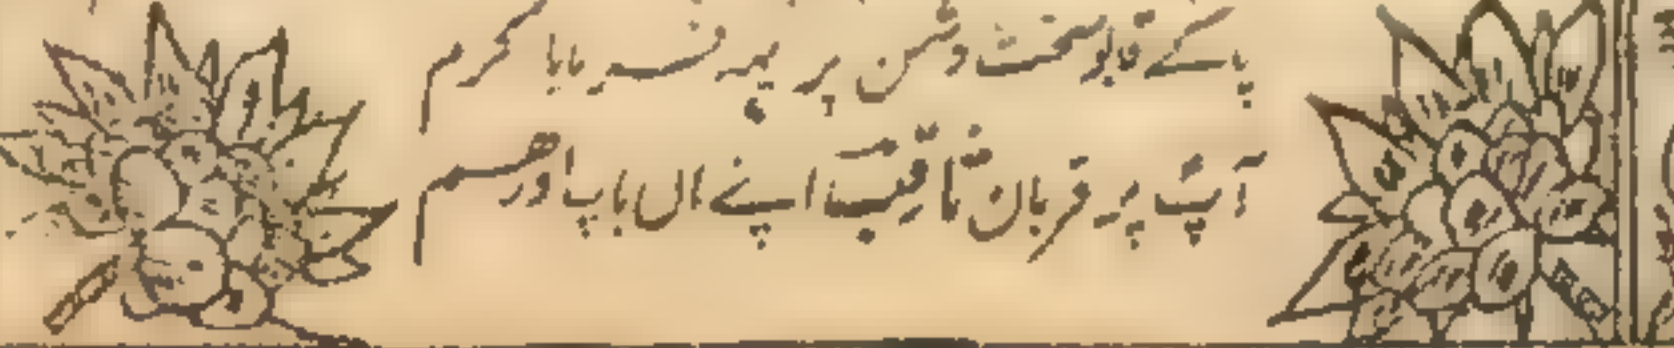 پا کے قابو سخت دشمن پر پھر فرمایا کرم
آپ پر قربان ثاقبؔ اپنے ماں باپ اور ھم